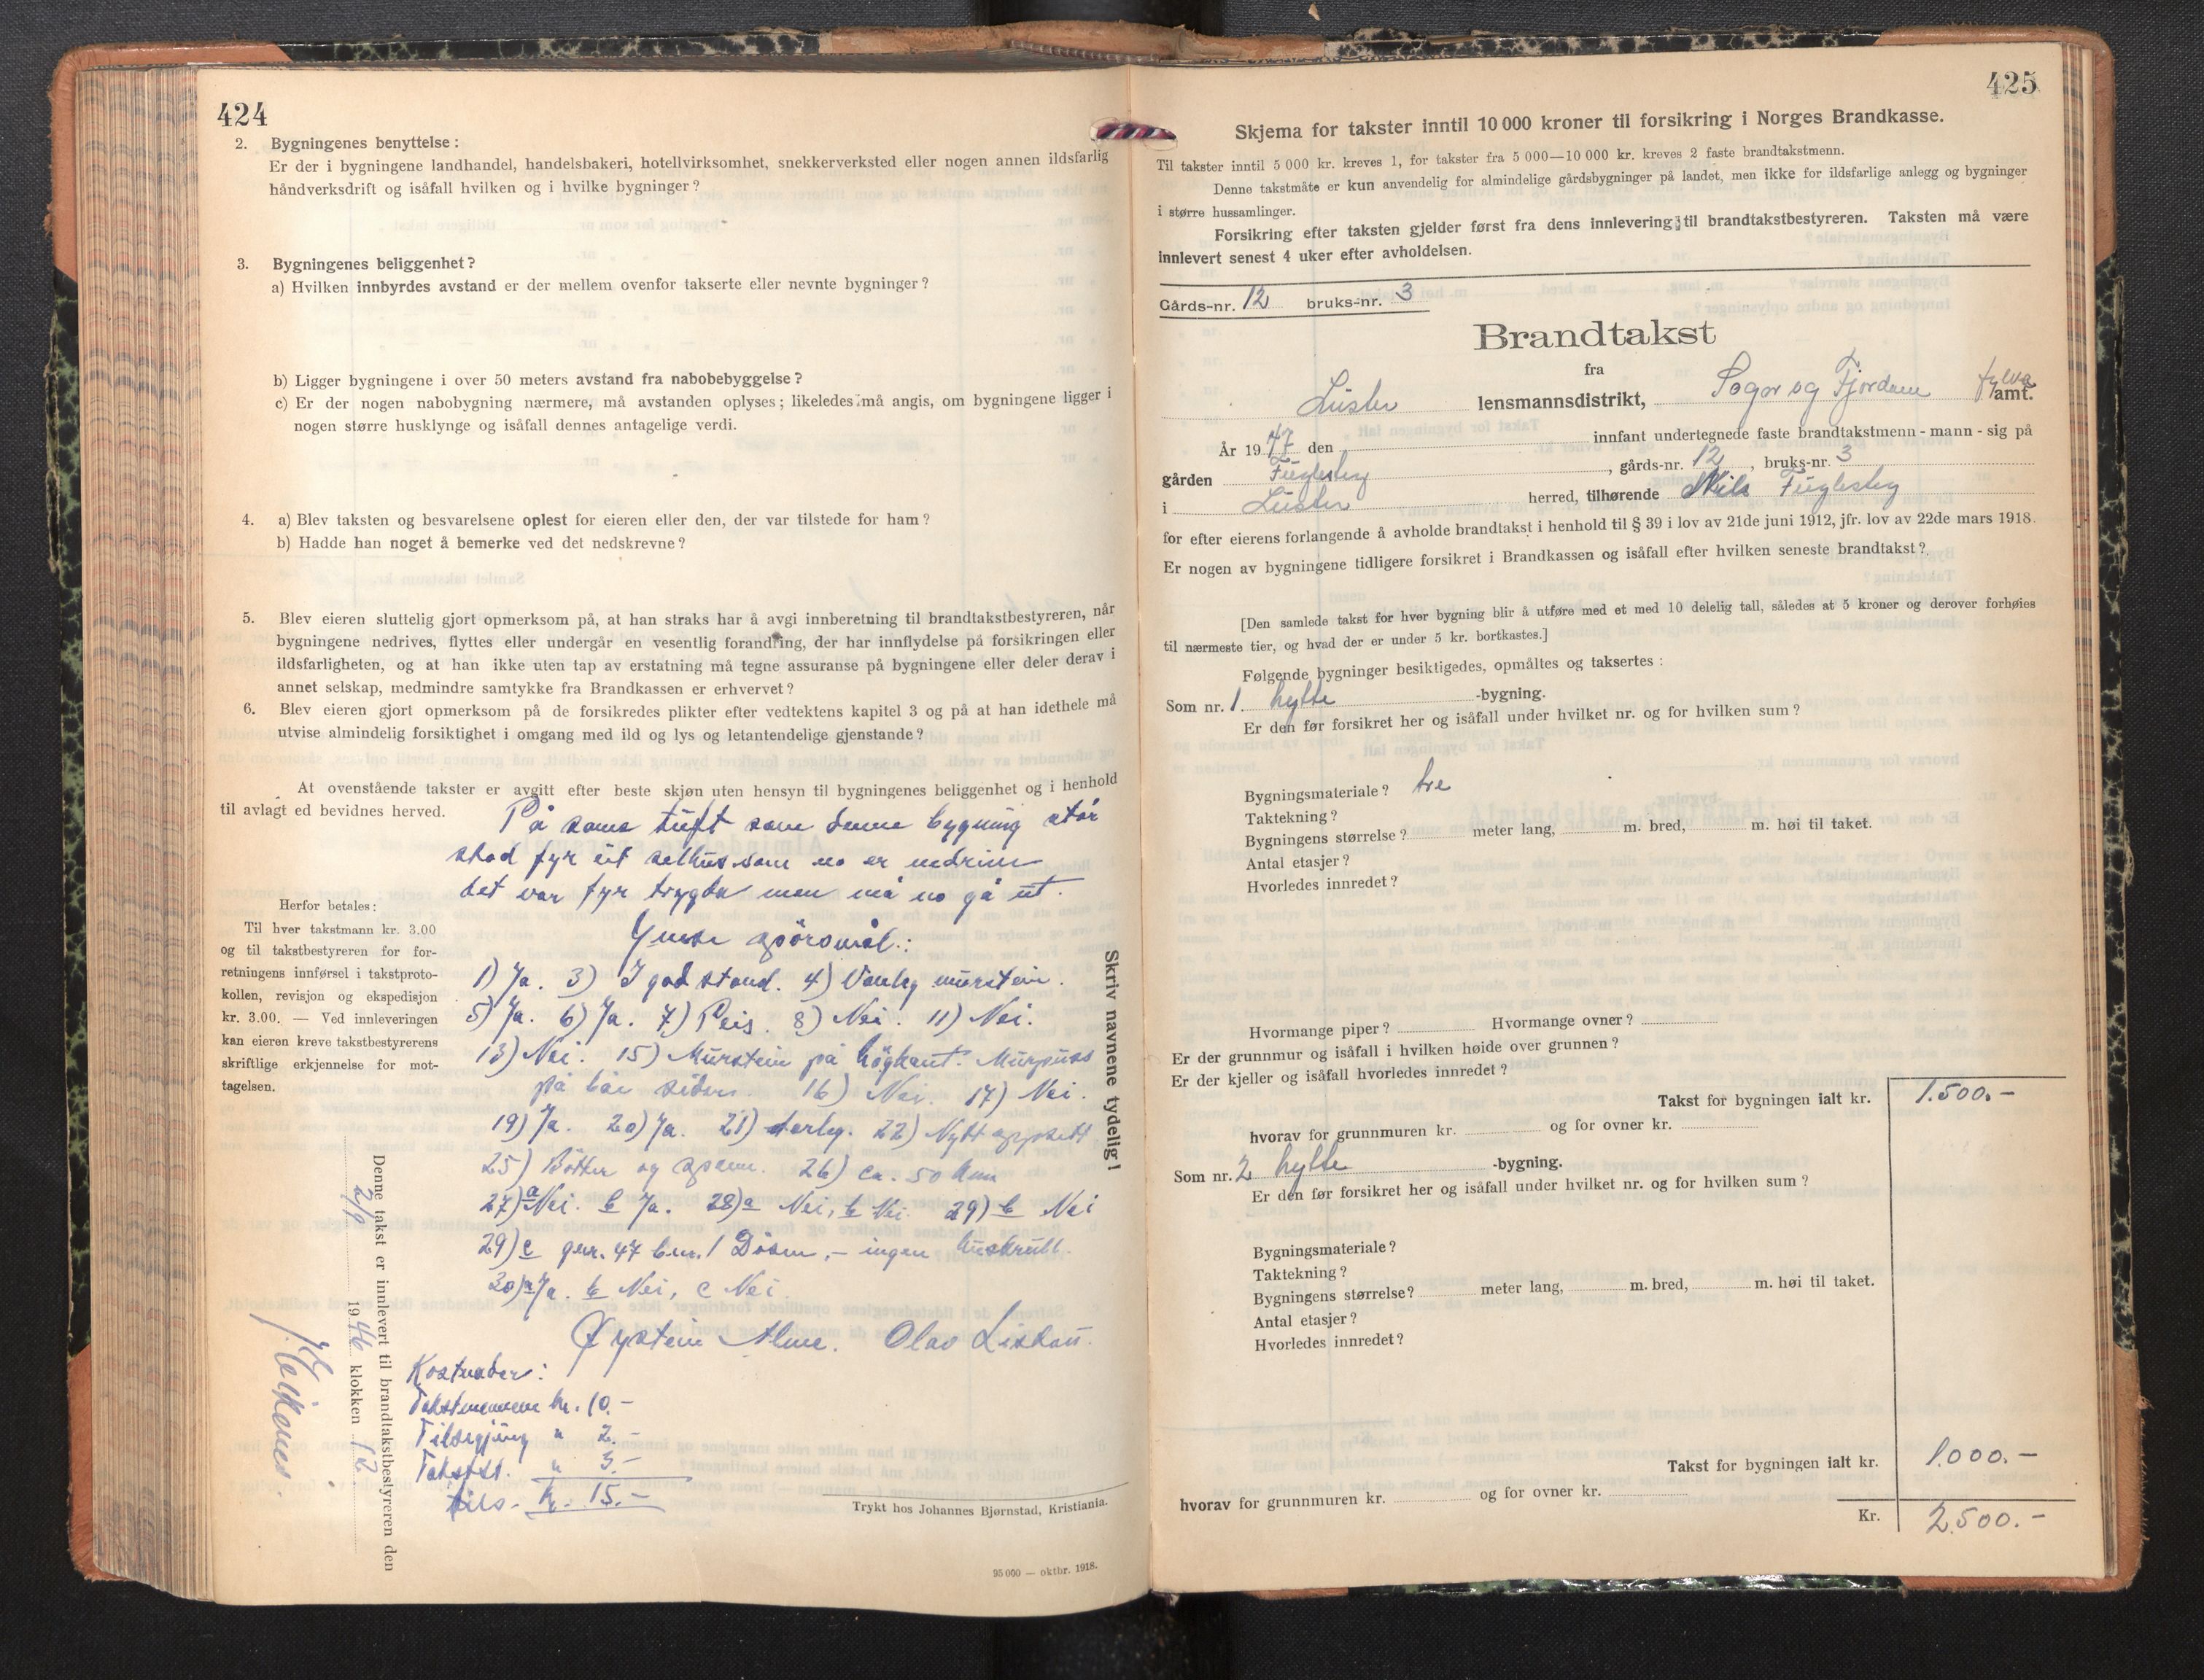 424
2. Bygningenes benyttelse :
Er der i bygningene landhandel, handelsbakeri, hotellvirksomhet, snekkerverksted eller nogen annen ildsfarlig
håndverksdrift og isåfall hvilken og i hvilke bygninger ?
3. Bygningenes beliggenhet ?
a) Hvilken innbyrdes avstand er der mellem ovenfor takserte eller nevnte bygninger ?
b) Ligger bygningene i over 50 meters avstand fra nabobebyggelse ?
c) Er der nogen nabobygning nærmere, må avstanden oplyses ; likeledes må angis, om bygningene ligger i
nogen større husklynge og isåfall dennes antagelige verdi.
4. a) Blev taksten og besvarelsene oplest for eieren eller den, der var tilstede for ham ?
b) Hadde han noget å bemerke ved det nedskrevne ?
5. Blev eieren sluttelig gjort opmerksom på, at han straks har å avgi innberetning til brandtakstbestyreren, når
bygningene nedrives, flyttes eller undergår en vesentlig forandring, der har innflydelse på forsikringen eller
ildsfarligheten, og at han ikke uten tap av erstatning må tegne assuranse på bygningene eller deler derav i
annet selskap, medmindre samtykke fra Brandkassen er erhvervet ?
6. Blev eieren gjort opmerksom på de forsikredes plikter efter vedtektens kapitel 3 og på at han idethele må
utvise almindelig forsiktighet i omgang med ild og lys og letantendelige gjenstande ?
At ovenstående takster er avgitt efter beste skjøn uten hensyn til bygningenes beliggenhet og i henhold
til avlagt ed bevidnes herved.
På same tuft som denne bygning står
stod fyr eit selhus som no er nedrive
det var fyr trygda men må no gå ut.
Ymse spörsmål.:
1) Ja. 3) I god stand. 4) Vanleg murstein.
5) Ja. 6) Ja. 7) Peis. 8) Nei. 11) Nei.
13) Nei. 15) Murstein på högkant. Murpuss
på båe sider. 16) Nei. 17) Nei.
19) Ja. 20) Ja. 21) 22) Nytt oppsett
25) Bötter og spann. 26) ca. 50 km
27) a Nei. b Ja. 28) a Nei, b Nei. 29) b Nei
29) c gnr. 47 bnr. 1 Dösen, - ingen
30) a Ja. b Nei, c Nei.
Øystein Alme. Olav
Herfor betales :
Til hver takstmann kr. 3.00
og til takstbestyreren for for-
retningens innførsel i takstproto-
kollen, revisjon og ekspedisjon
kr. 3.00. — Ved innleveringen
kan eieren kreve takstbestyrerens
skriftlige erkjennelse for mot-
tagelsen.
Skriv navnene tydelig !
Denne takst er innlevert til brandtakstbestyreren den
2/9 1946 klokken 12
Kostnader :
Takstmennene kr. 10.-
Tilsigjing " 2.-
Takstst. " 3.-
tils. kr. 15.-
Trykt hos Johannes Bjørnstad, Kristiania.
95 000 — oktbr. 1918.
425
Skjema for takster inntil 10 000 kroner til forsikring i Norges Brandkasse.
Til takster inntil 5 000 kr. kreves 1, for takster fra 5 000—10 000 kr. kreves 2 faste brandtakstmenn.
Denne takstmåte er kun anvendelig for almindelige gårdsbygninger på landet, men ikke for ildsfarlige anlegg og bygninger
i større hussamlinger.
Forsikring efter taksten gjelder først fra dens innlevering til brandtakstbestyreren. Taksten må være
innlevert senest 4 uker efter avholdelsen.
Gårds-nr. 12 bruks-nr. 3
Brandtakst
fra
Luster lensmannsdistrikt, Sogn og Fjordane fylke amt.
År 1947 den innfant undertegnede faste brandtakstmenn - mann - sig på
gården Fuglesteg, gårds-nr. 12, bruks-nr. 3
i Luster herred, tilhørende Nils Fuglesteg
for efter eierens forlangende å avholde brandtakst i henhold til § 39 i lov av 21de juni 1912, jfr. lov av 22de mars 1918.
Er nogen av bygningene tidligere forsikret i Brandkassen og isåfall efter hvilken seneste brandtakst ?
[Den samlede takst for hver bygning blir å utføre med et med 10 delelig tall, således at 5 kroner og derover forhøies
til nærmeste tier, og hvad der er under 5 kr. bortkastes.]
Følgende bygninger besiktigedes, opmåltes og taksertes :
Som nr. 1. hytte -bygning.
Er den før forsikret her og isåfall under hvilket nr. og for hvilken sum ?
Bygningsmateriale ? tre
Taktekning ?
Bygningens størrelse ? meter lang, m. bred, m. høi til taket.
Antal etasjer ?
Hvorledes innredet ?
Hvormange piper ? Hvormange ovner ?
Er der grunnmur og isåfall i hvilken høide over grunnen ?
Er der kjeller og isåfall hvorledes innredet ?
Takst for bygningen ialt kr. 1.500.-
hvorav for grunnmuren kr. og for ovner kr.
Som nr. 2 hytte -bygning.
Er den før forsikret her og isåfall under hvilket nr. og for hvilken sum ?
Bygningsmateriale ?
Taktekning ?
Bygningens størrelse ? meter lang, m. bred, m. høi til taket.
Antal etasjer ?
Hvorledes innredet ?
Takst for bygningen ialt kr. 1.000.-
hvorav for grunnmuren kr. og for ovner kr.
Kr. 2.500.-